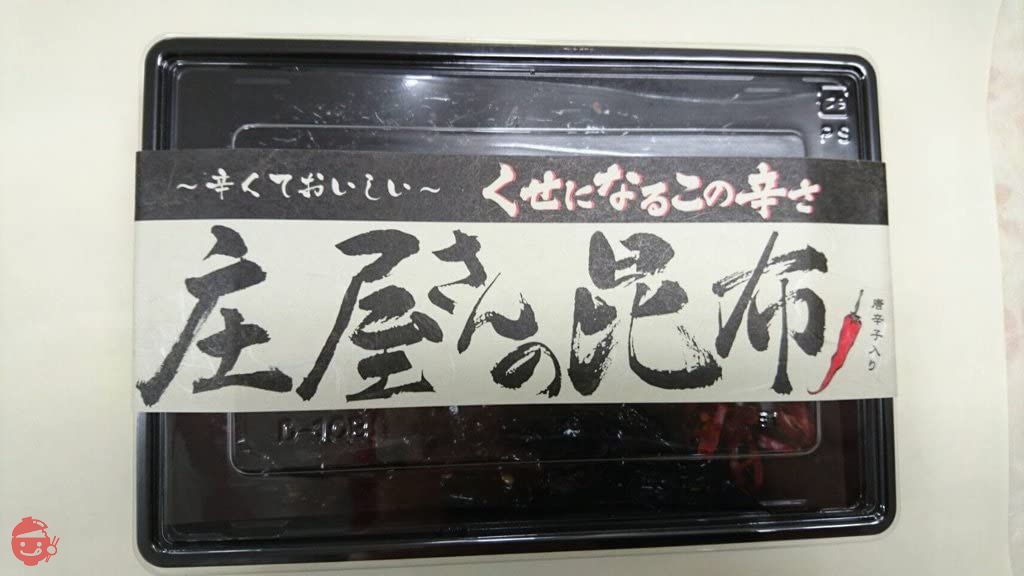 ～辛くておいしい～ くせになるこの辛さ
庄屋さんの昆布
唐辛子入り
PS